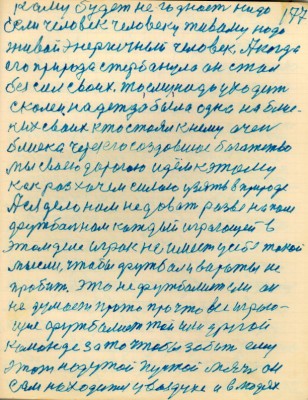 кому будет не годность надо 147
если человек человеку живому надо
живой энергичный человек. А когда
его природа стербанула он стал
без сил своих то ему надо уходить
сколеи надежда была одна на бли
ких своих кто стоял к нему очен
близка через его создавшое богатство
мы своею дорогою идем к этому
как раз хочем силою увять в природе
А ея дело нам не довать разве на поли
футбольном каждый играющей в
этом деле играк не имеет у себе такой
мысли, чтобы футбол и варыты не
пробит. Это не футболист если он
не думает про то про что все играю-
щие футболист той или другой
команде за то чтобы забить ему
этот надутой пустой мяч он
сам находится у воздухе и в людях